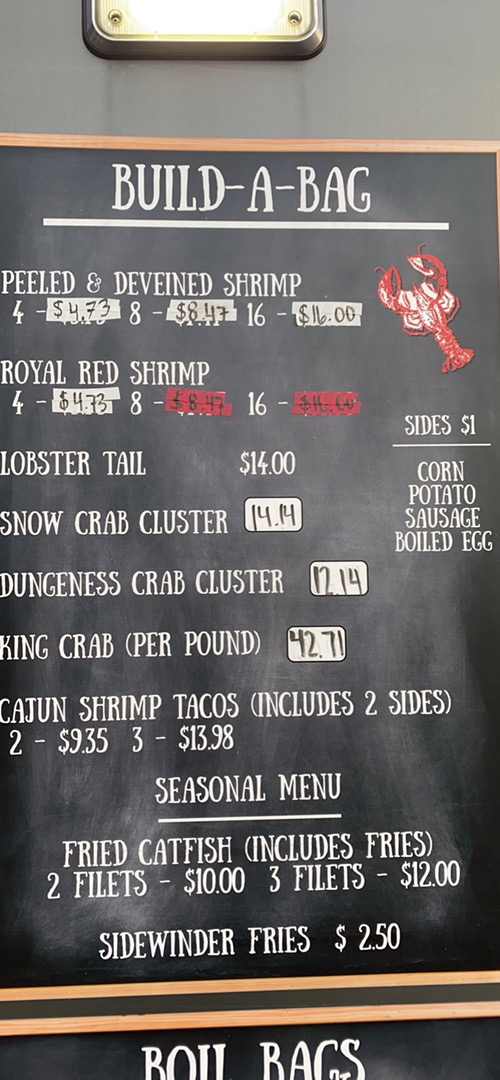 BUILD-A-BAG
PEELED & DEVEINED SHRIMP
4 - $4.73 8 - $8.47 16 - $16.00
ROYAL RED SHRIMP
4 - $4.73 8 - $8.47 16 - $16.00
SIDES $1
LOBSTER TAIL $14.00
CORN
POTATO
SAUSAGE
BOILED EGG
SNOW CRAB CLUSTER 14.14
DUNGENESS CRAB CLUSTER 12.14
KING CRAB (PER POUND) 42.71
CAJUN SHRIMP TACOS (INCLUDES 2 SIDES)
2 - $9.35 3 - $13.98
SEASONAL MENU
FRIED CATFISH (INCLUDES FRIES)
2 FILETS - $10.00 3 FILETS - $12.00
SIDEWINDER FRIES $ 2.50
BOIL BAGS